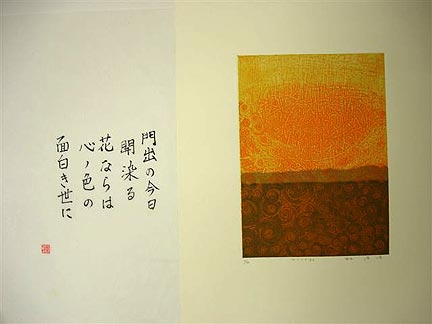 門出の今日
開染る
花ならは
心ノ色の
面白き世に